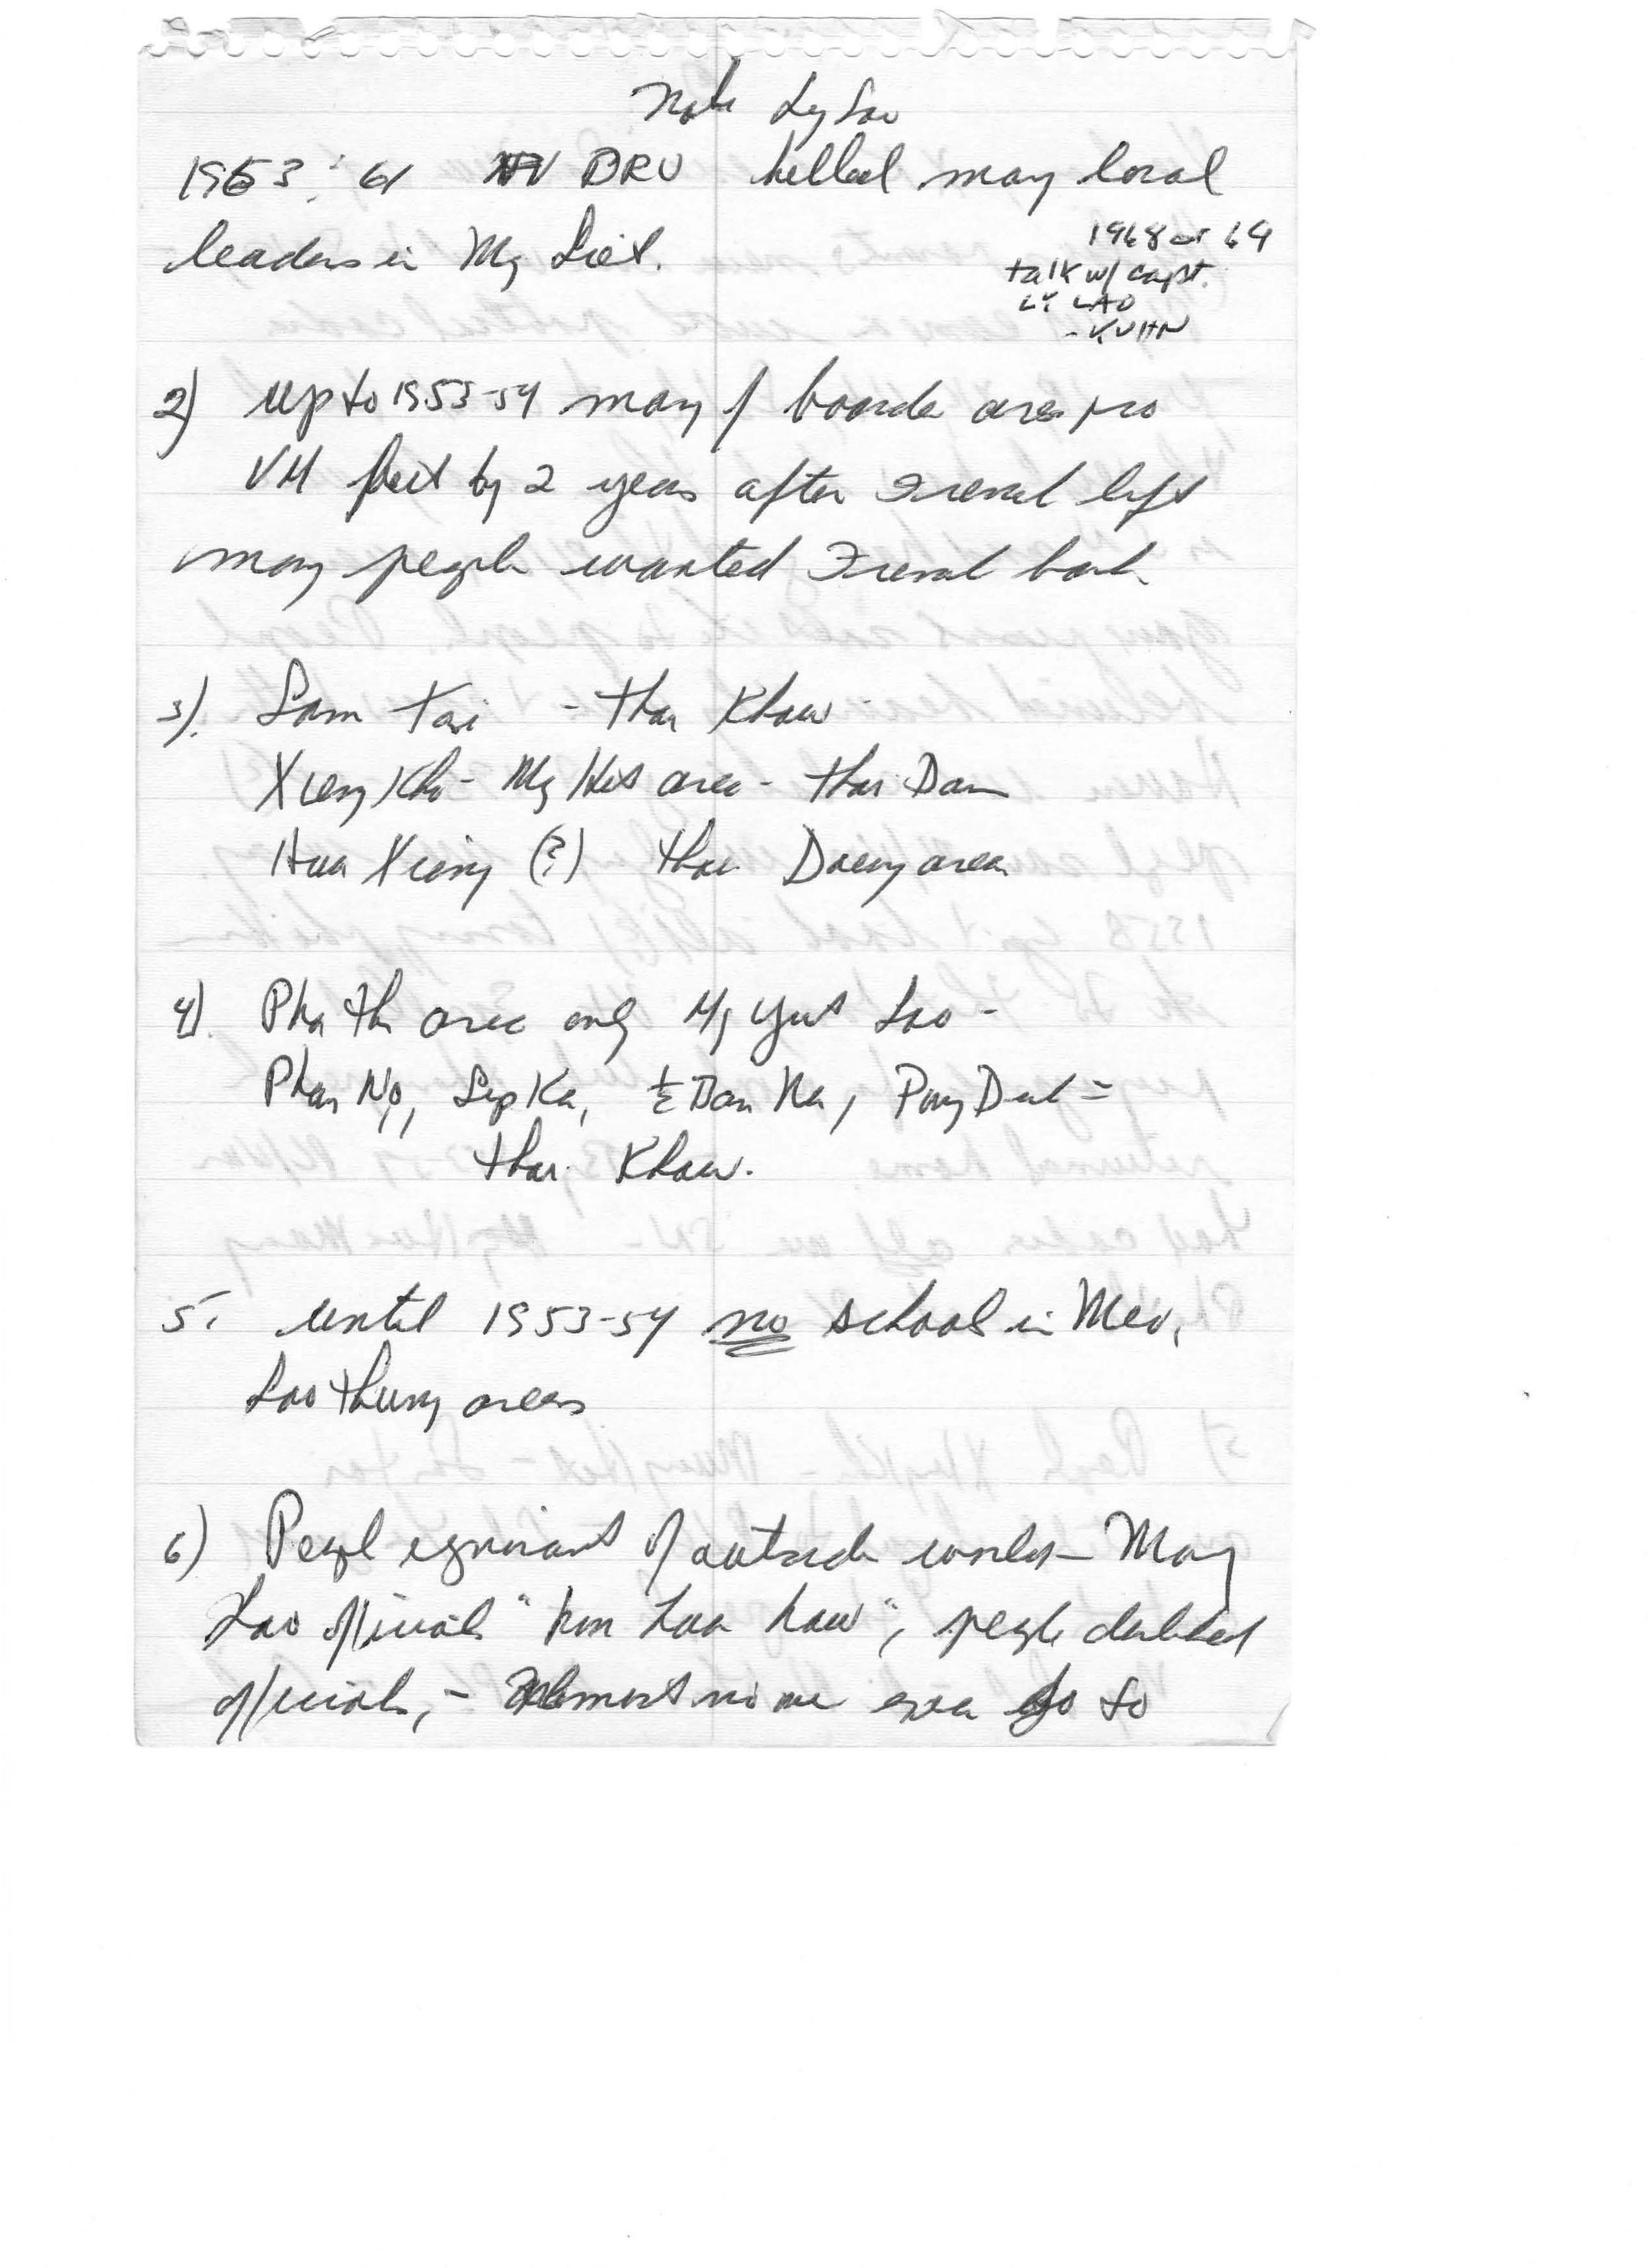 Note Ly Lao
1953: 61 NV DRV killed many local
leaders in Mg Liet.
1968 or 69
talk w/ capt.
LY LAO
- KUHN
2) Up to 1953-54 many of border area pro
VM but by 2 years after French left
many people wanted French back
3). Sam Tai - Thai Khaw
Xieng Kho - Mg Het area - Thai Dam
Hua Xieng (?) Thai Daeng area
4). Pha Thi area only Mg Yut Lao -
Phan No, Sip Ka, Ban Na, Pong Deut =
Thai Khaw.
5. Until 1953-54 no school in Meo,
Lao Thung areas
6) People ignorant of outside world - Many
Lao officials " hua kaw", people disliked
officials, - almost no one ever go to